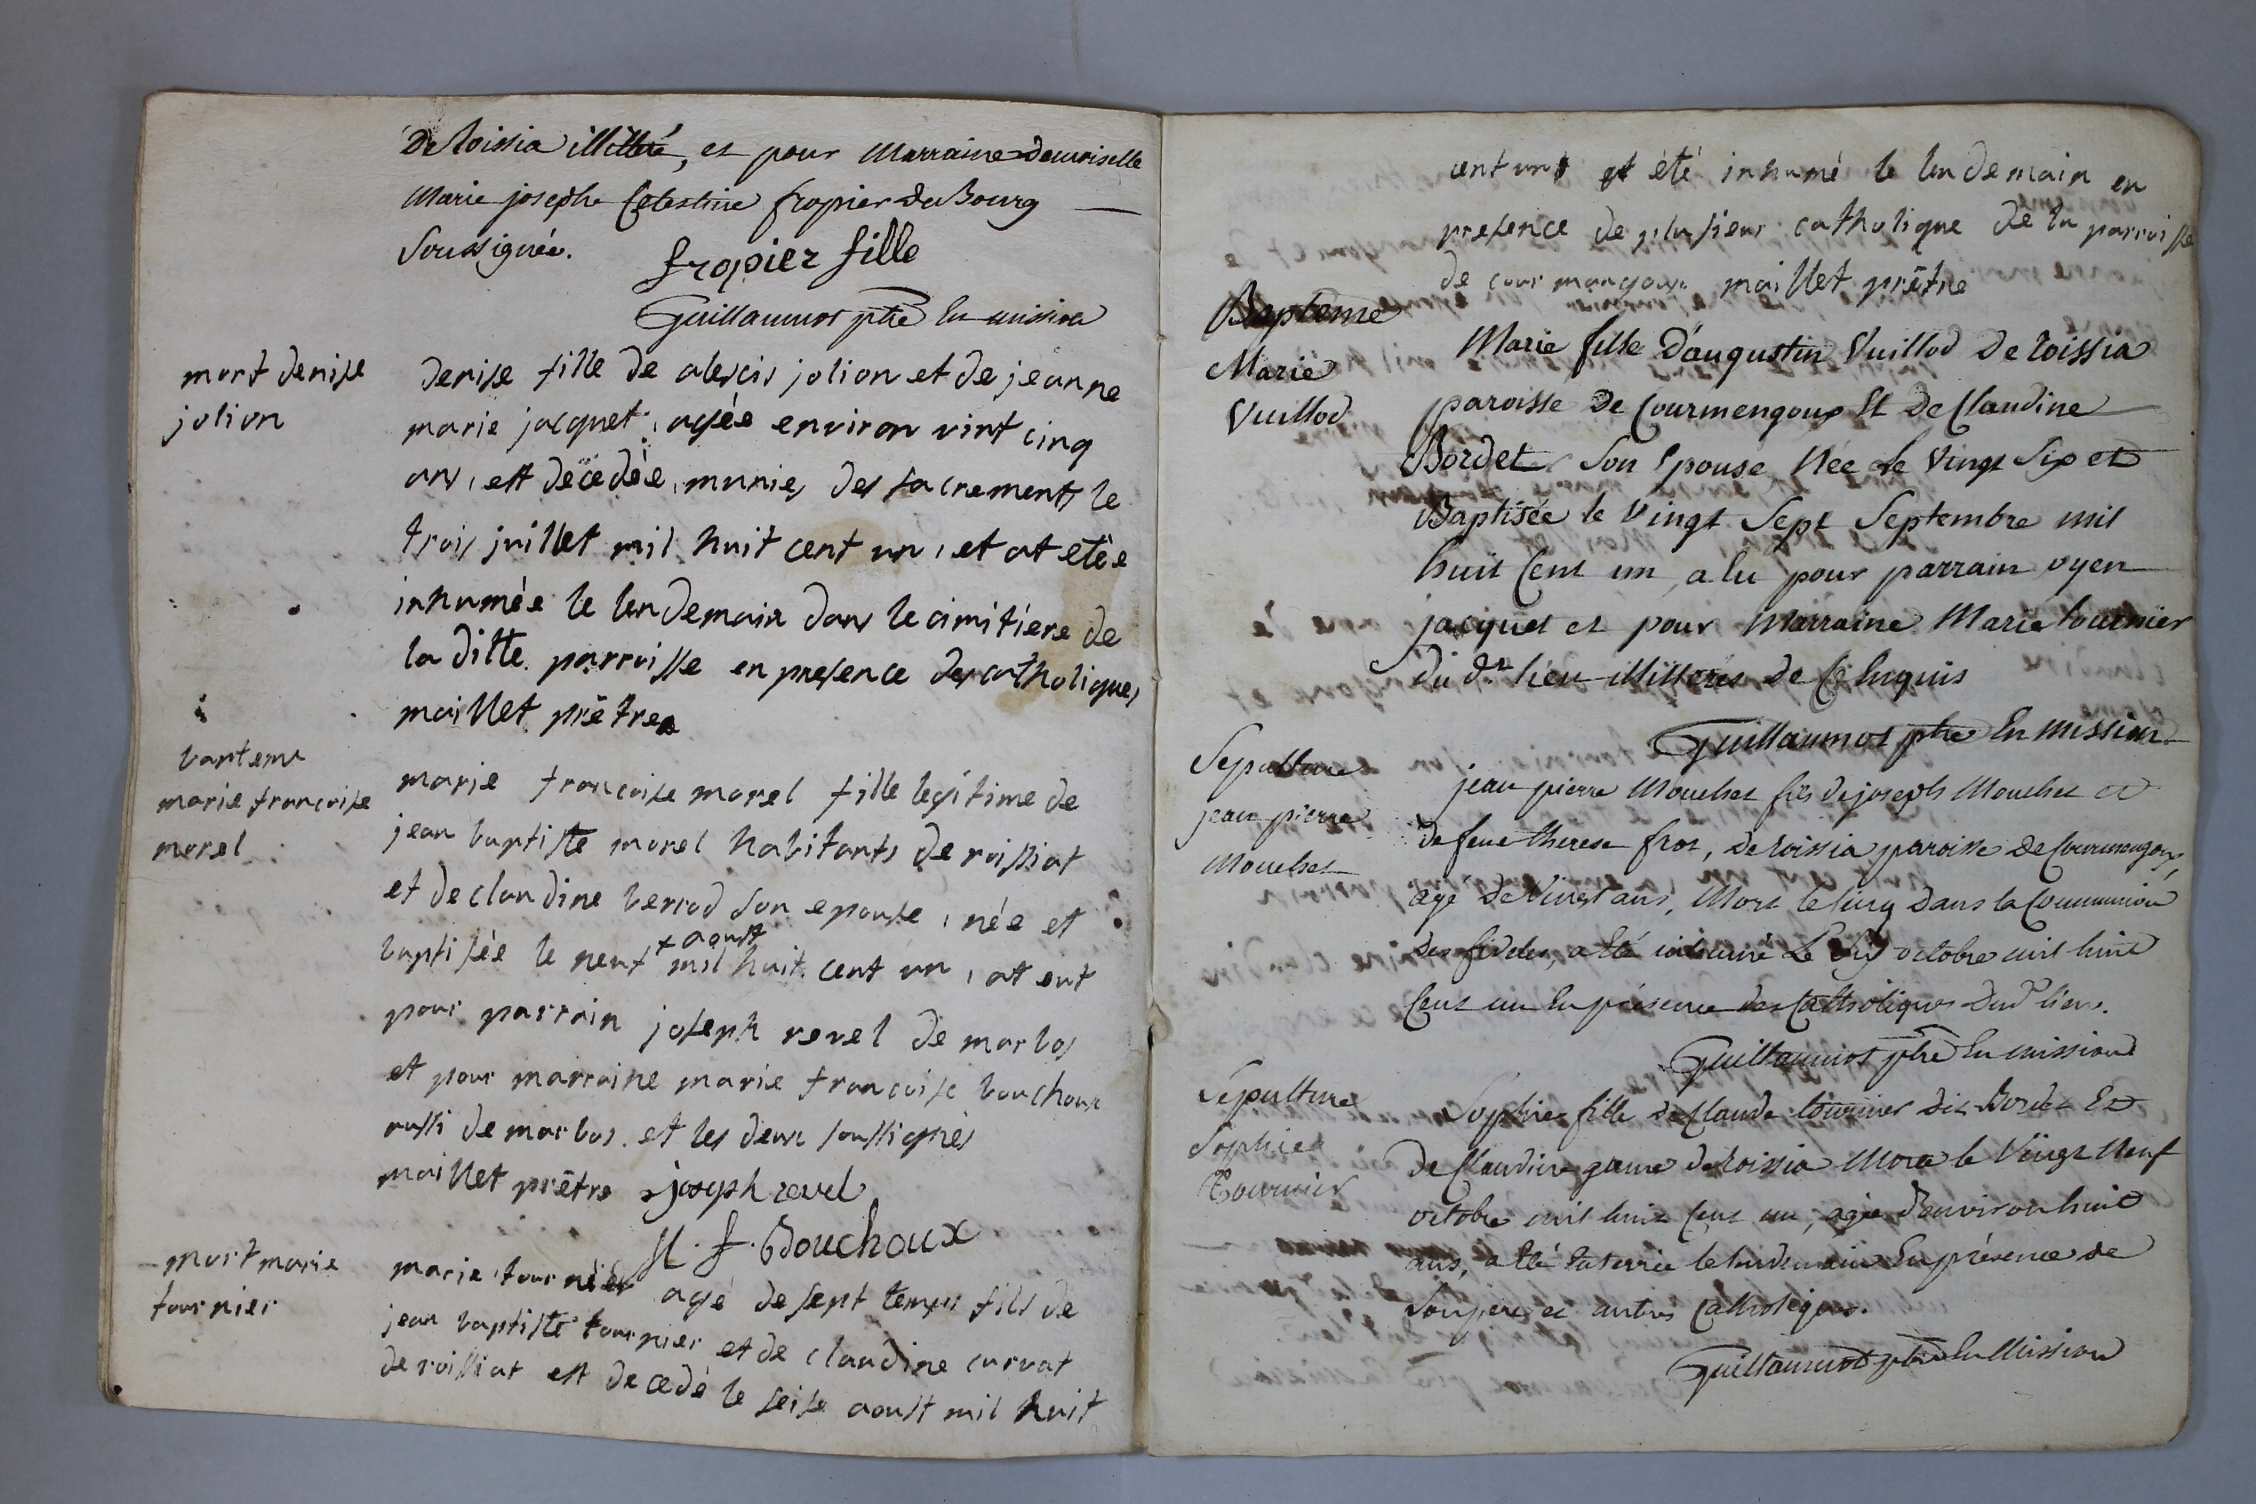 De loissia illitéré, et pour Marraine demoiselle
Marie josephe Celestine fropier du Bourg
Soussignée.
fropier fille
Guillaumot ptre En mission
mort denise
jolion
denise fille de alexis jolion et de jeanne
marie jacquet, agée environ vint cinq
ans, est décedée, munie, des sacrements le
trois juillet mil huit cent un, et at etée
inhumée le lendemain dans le cimitiere de
la ditte parroisse en presence des catholiques
maillet prêtre
bapteme
marie francoise
morel
marie francoise morel fille legitime de
jean baptiste morel habitants de roissiat
et de claudine berrod son epouse, née et
baptisée le neuf + aoust mil huit cent un, at eut
pour parrain joseph revel de marbos
et pour marraine marie francoise bouchoux
aussi de marbos et les deux soussignés
maillet prêtre joseph revel
M. f. Bouchoux
mort marie
tournier
marie tournier agé de sept temps fils de
jean baptiste tournier et de claudine curvat
de roissiat est decedé le seise aoust mil huit
cent un et été inhumé le lendemain en
presence de plusieur catholique de la parroisse
de cour mangoux maillet prêtre
Bapteme
Marie
Vuillod
Marie fille d'augustin Vuillod De loissia
paroisse De Courmengoux Et De Claudine
Bordet Son Epouse Née le Vingt Six et
Baptisée le Vingt Sept Septembre mil
huit Cent un, a Eu pour parrain oyen
jacquet et pour Marraine Marie tournier
du dt lieu illittérés de Ce Enquis
Guillaumot ptre En Mission
Sepulture
jean pierre
Mouchet
jean pierre Mouchet fils de joseph Mouchet et
de feue therese frot, de loissia paroisse de Courmengoux,
agé de Vingt ans, Mort le cinq Dans la Communion
des fideles, a Eté inhumé Le Six octobre mil huit
Cent un En présence des Catholiques Dud lieu.
Guillaumot ptre En mission
Sepulture
Sophie
Tournier
Sophie fille de Claude tournier dit Bordet Et
De Claudine de loissia Morte le Vingt Neuf
octobre mil huit Cent un, agée d'environ huit
ans, a Eté Enterrée le lendemain En présence de
Son pere et autres Catholiques.
Guillaumot ptre En Mission